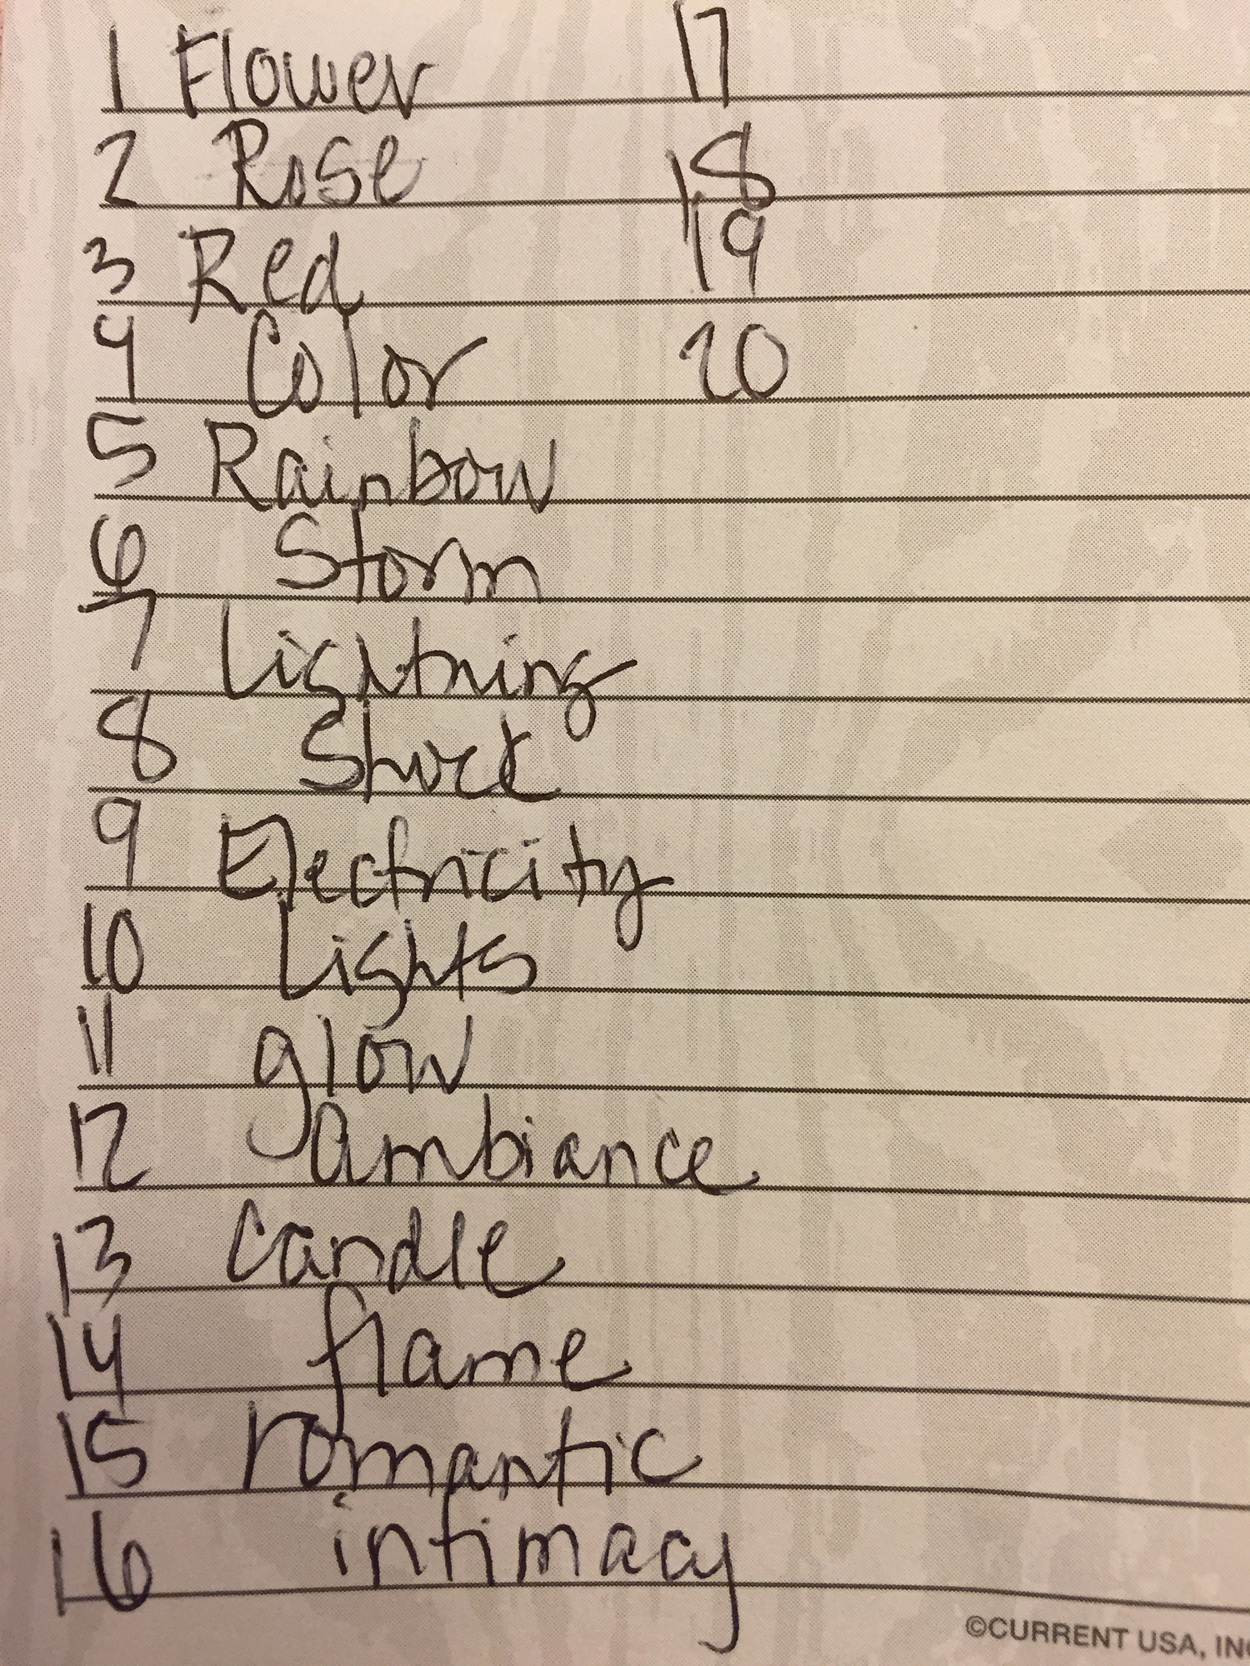 1 Flower
2 Rose
3 Red
4 Color
5 Rainbow
6 Storm
7 Lightning
8 Shock
9 Electricity
10 Lights
11 glow
12 ambiance
13 candle
14 flame
15 romantic
16 intimacy
17
18
19
20
©CURRENT USA, INC